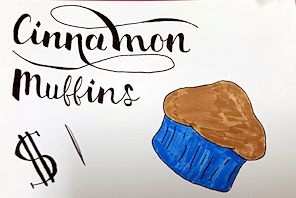 Cinnamon
Muffins
$1